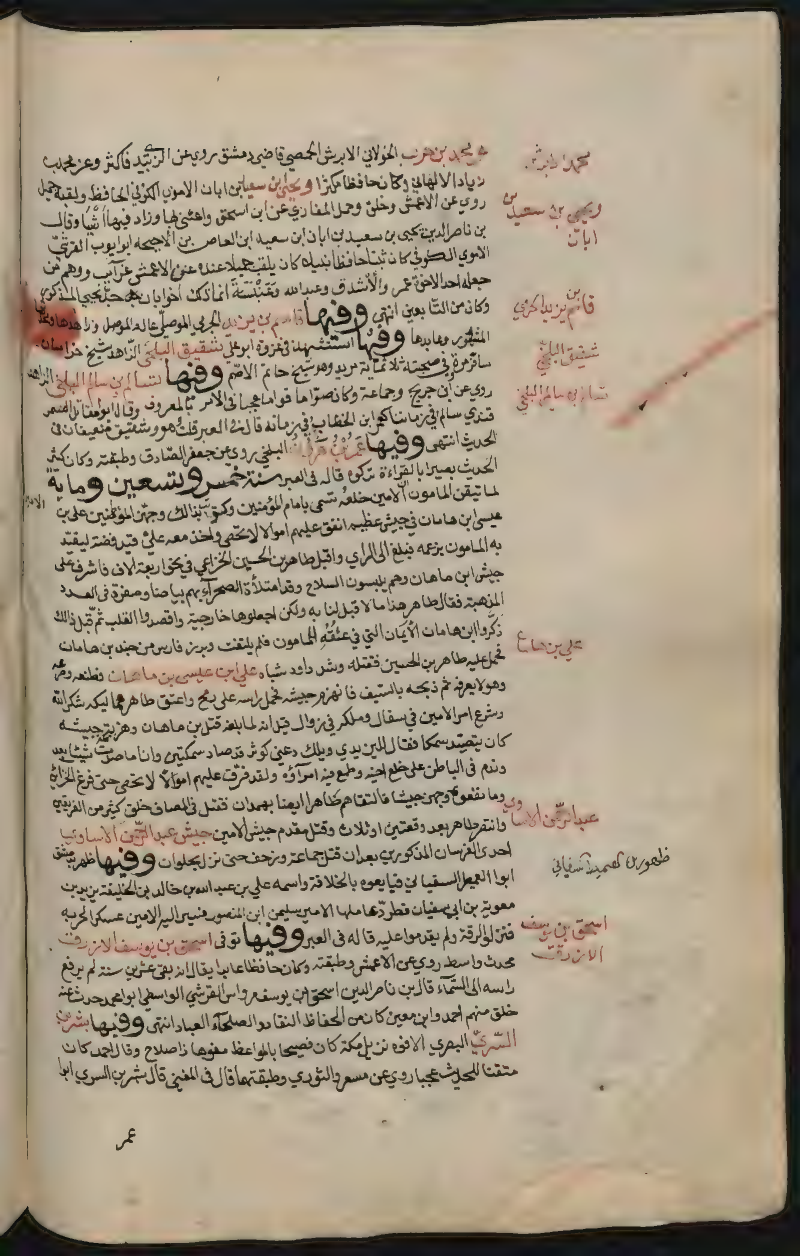 محمد بن حرب الخولاني الابرش الحمصي قاضي دمشق روي عن الزبيدي فاكثر وعن محمد بن
زياد الالهاني وكان حافظا مكثرا ويحيى ابن سعيد بن ابان الاموي الكوفي الحافظ ولقبه جمل
روي عن الاعمش وخلق وحمل المغازي عن ابن اسحق واعتنى بها وزاد فيها اشيا وقال
بن ناصر الدين يحيى بن سعيد بن ابان ابن سعيد ابن العاص بن الاحيحه ابو ايوب القرشي
الاموي الكوفي كان ثبتا حافظا نبيلا كان يلقب جملا عنده عن الاعمش غرايب ووهم من
جعله احد الاخوة عمر والاشدق وعبد الله وعنبسة انما ذلك اخو ابان جد يحيى المذكور
وكان من التابعين انتهى وفيها قاسم بن يزيد الجرمي الموصلي عالم الموصل وزاهدها
المشهور وعابدها وفيها استشهد في غزوه ابو علي شقيق البلخي الزاهد شيخ خراسان
سافر مرة في صحبته ثلاثماية مريد وهو شيخ حاتم الاصم وفيها سالم بن سالم البلخي الزاهد
روي عن ابن جريج وجماعة وكان صواما قواما عجبا في الامر بالمعروف وقال ابو مقاتل السمر
قندي سالم في زماننا كعمر ابن الخطاب في زمانه قال في العبر قلت هو وشقيق ضعيفان في
الحديث انتهى وفيها عمر بن هرون البلخي روي عن جعفر الصادق وطبقته وكان كثير
الحديث بصيرا بالقراءة تركوه قاله في العبر سنة خمس وتسعين وماية
لما تيقن المامون الامين خلعه تسمى بامام المؤمنين وكتب بذالك وجهز الامين علي بن
عيسى ابن هامان في جيش عظيم انفق عليهم اموالا لا تحصى واخذ معه علي قيد فضة ليقيد
به المامون بزعمه فبلغ الى الراي واقبل طاهر بن الحسين الخزاعي في نحو اربعة الاف فاشرف على
جيش ابن ماهان وهم يلبسون السلاح وقد امتلأة الصحرآء بهم بياضا وصفرة في العدد
المذهبة فقال طاهر هذا ما لا قبل لنا به ولكن اجعلوها خارجية واقصدوا القلب ثم قبل ذالك
ذكروا ابن هامان الأيمان التي في عنقه للمامون فلم يلتفت وبرز فارس من جند بن هامان
فحمل عليه طاهر بن الحسين فقتله وشد داود شباه على ابن عيسى بن ماهان فطعنه وصرعه
وهو لا يعرفه ثم ذبحه بالسيف فانهزم جيشه فحمل راسه على رمح واعتق طاهر مماليكه شكرا لله
وشرع امر الامين في سفال وملكه في زوال قيل انه لما بلغه قتل بن ماهان وهزيمة جيشه
كان يتصيد سمكا فقال للبريدي ويلك دعني كوثر قد صاد سمكتين وانا ما صدت شيئا بعد
وندم في الباطن على خلع اخيه وطمع فيه امرآؤه ولقد فرق عليهم اموالا لا تحصى حتى فرغ الخزاين
وما نفعوه وجهز جيشا فالتقاهم طاهر ايضا بهمدان فقتل في المصاف خلق كثير من الفريقين
وانتصر طاهر بعد وقعتين او ثلاث وقتل مقدم جيش الامين جيش عبد الرحمن الاساوي
احد الفرسان المذكورين بعد ان قتل جماعة وزحف حتى نزل بحلوان وفيها ظهر بدمشق
ابو العميطر السفياني فبايعوه بالخلافة واسمه علي بن عبد الله بن خالد بن الخليفة يزيد بن
معوية بن ابي سفيان فطرد عاملها الامير سليمن ابن المنصور فسير اليه الامين عسكرا لحربه
فنزلوا الرقة ولم يقدموا عليه قاله في العبر وفيها توفى اسحق بن يوسف الازرق
محدث واسط روي عن الاعمش وطبقته وكان حافظا عابدا يقال انه بقى عشرين سنة لم يرفع
راسه الى السمآء قال بن ناصر الدين اسحق ابن يوسف بن مرداس القرشي الواسطي ابو محمد حدث عنه
خلق منهم احمد وابن معين كان من الحفاظ النقاد والصلحآء العباد انتهى وفيها بشر بن
السري البصري الافوه نزيل مكة كان فصيحا بالمواعظ مفوها ذا صلاح وقال احمد كان
متقنا للحديث عجبا روي عن مسعر والثوري وطبقتهما قال في المغني قال بشر بن السري ابوا
عمر
ويحيى بن سعيد بن
ابان
قاسم بن يزيد الجرمي
شقيق البلخي
سالم بن سالم البلخي
علي بن هامان
عبد الرحمن الاساوي
ظهور بن العميطر سفياني
اسحق بن يوسف
الازرق